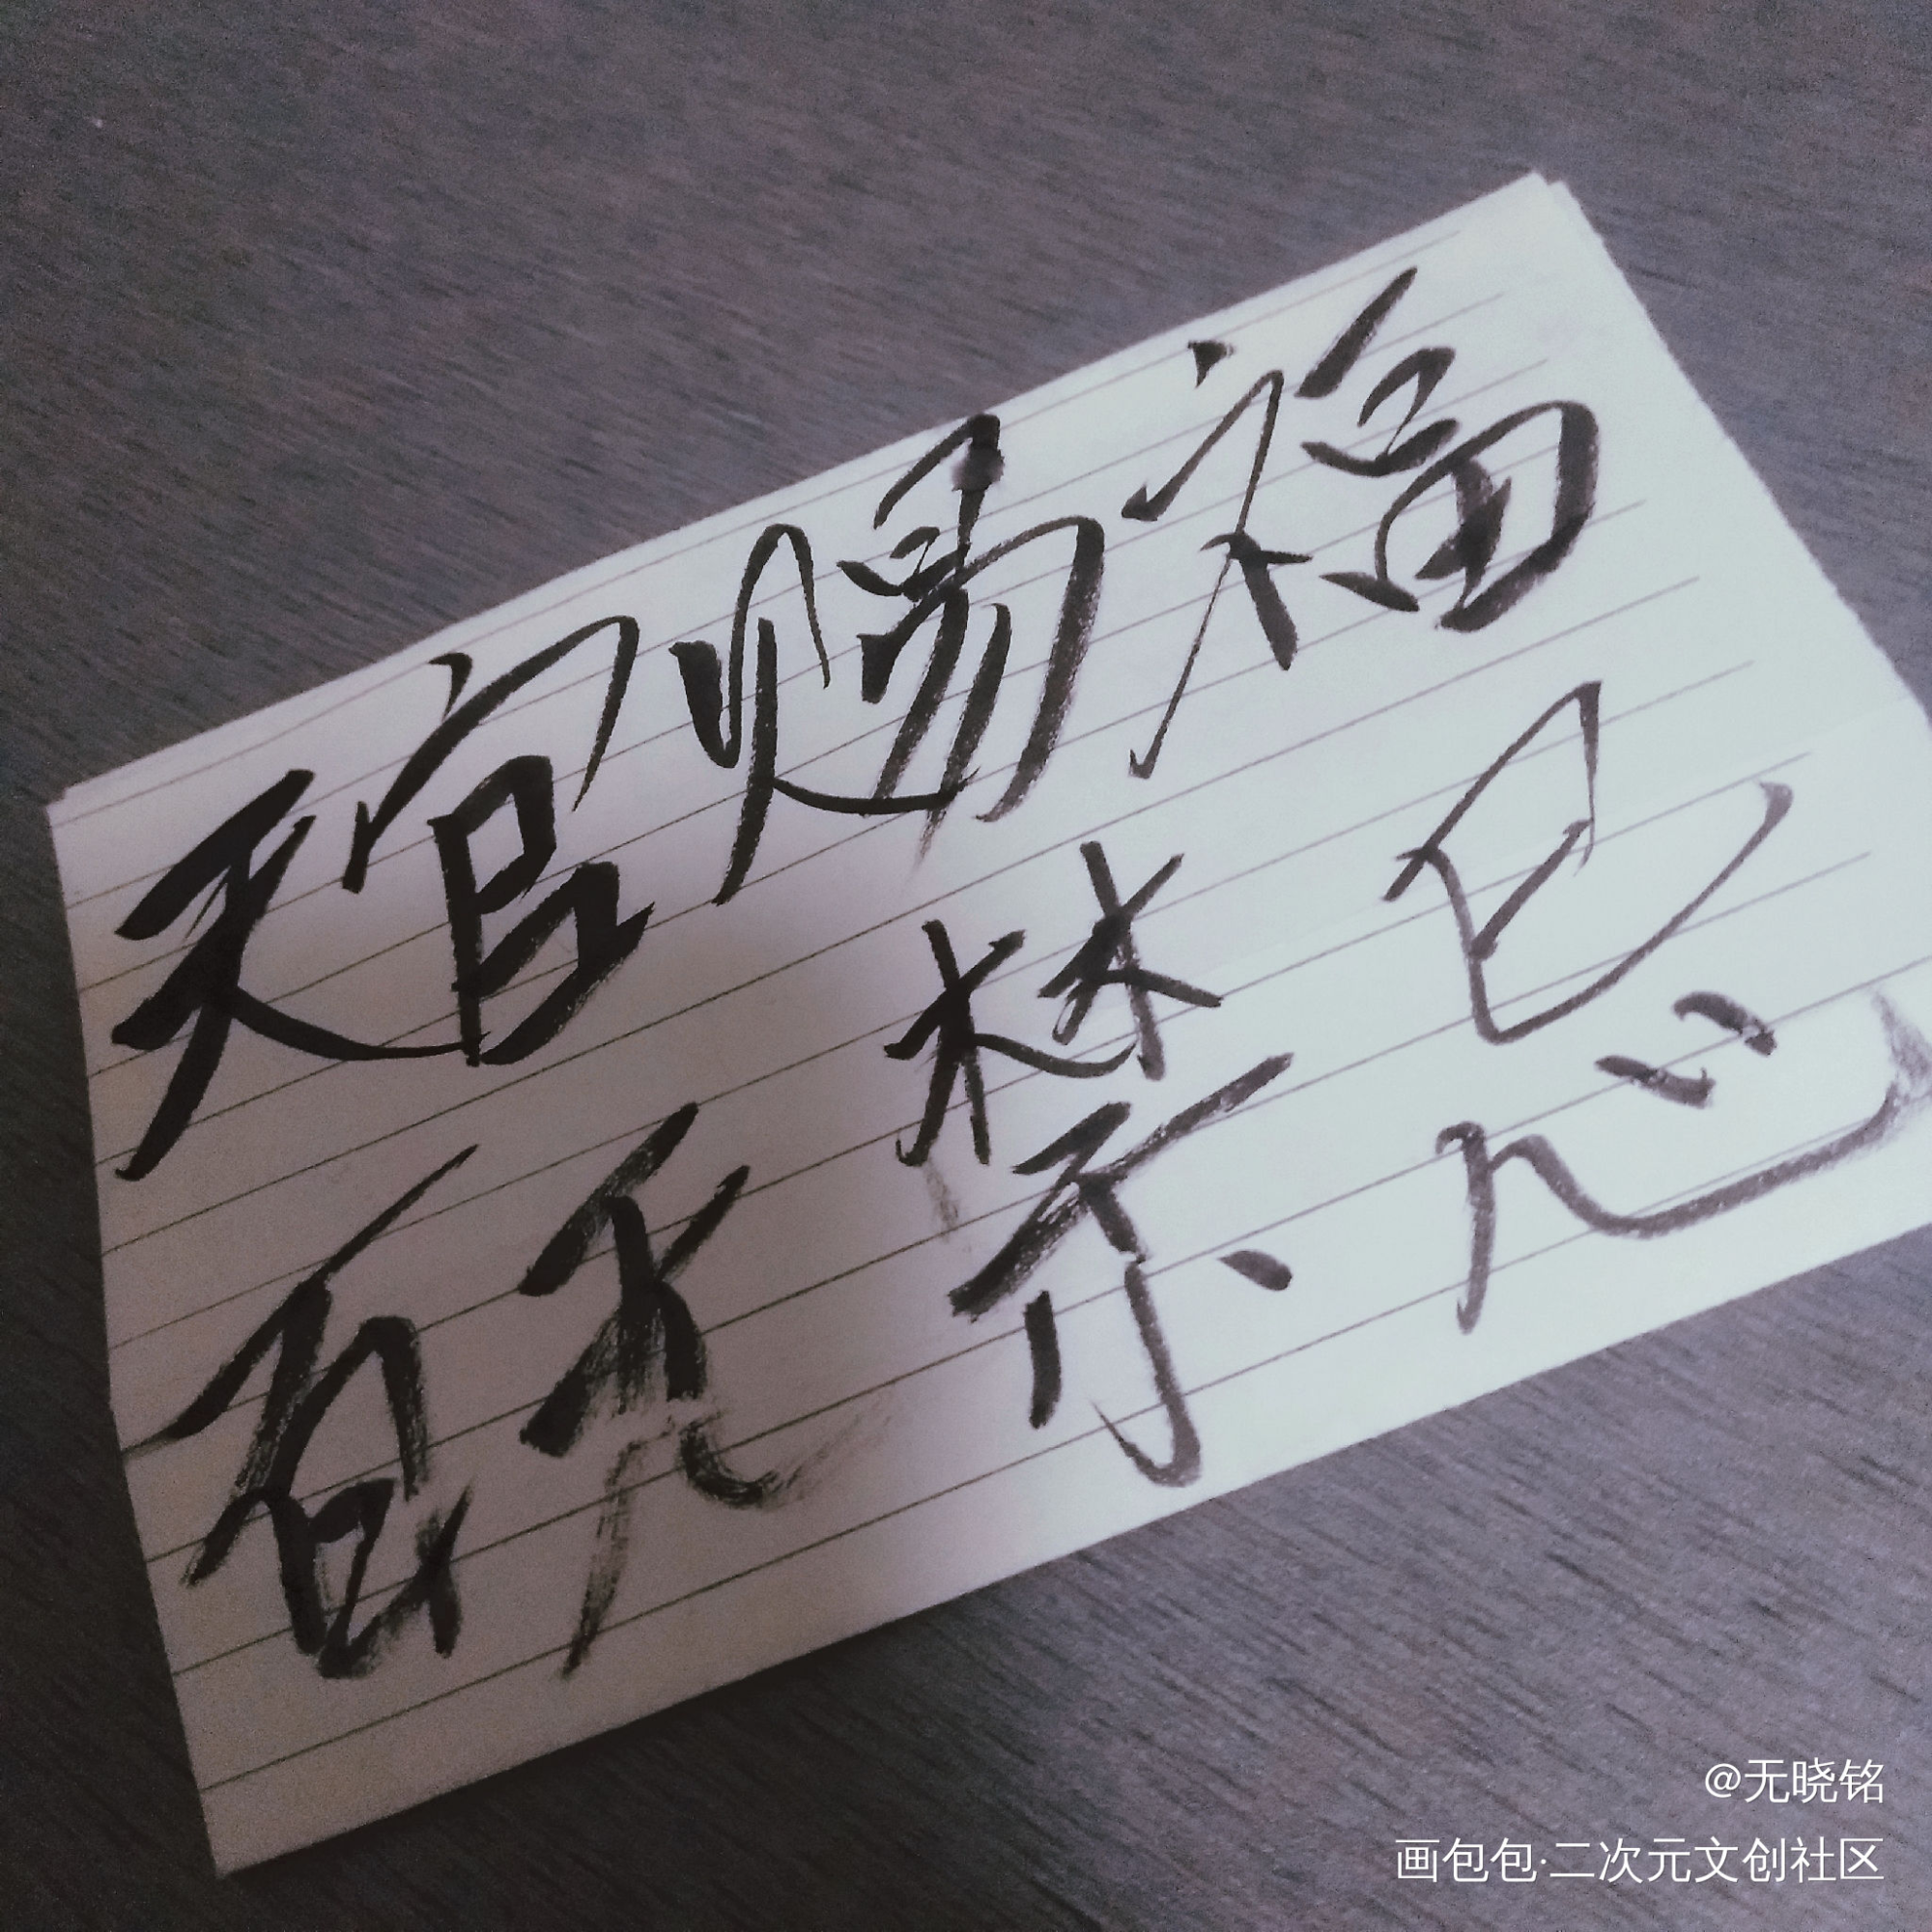 天官赐福
百无禁忌
@无晓铭
画包包·二次元文创社区